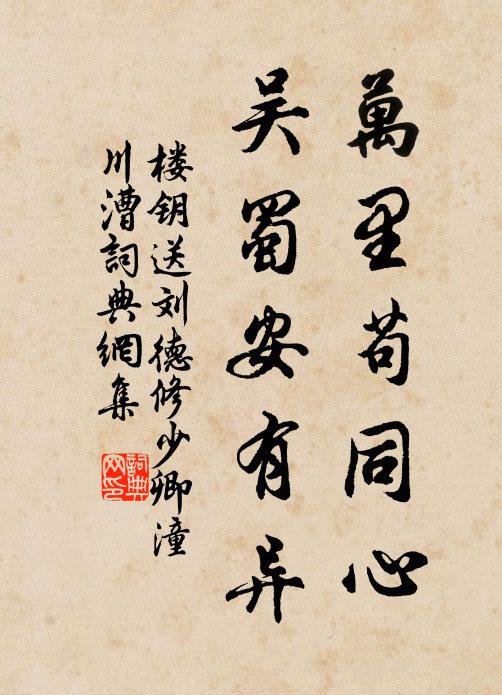 萬里苟同心
吴蜀安有异
楼钥送刘德修少卿潼
川漕詞典網集
詞典網印